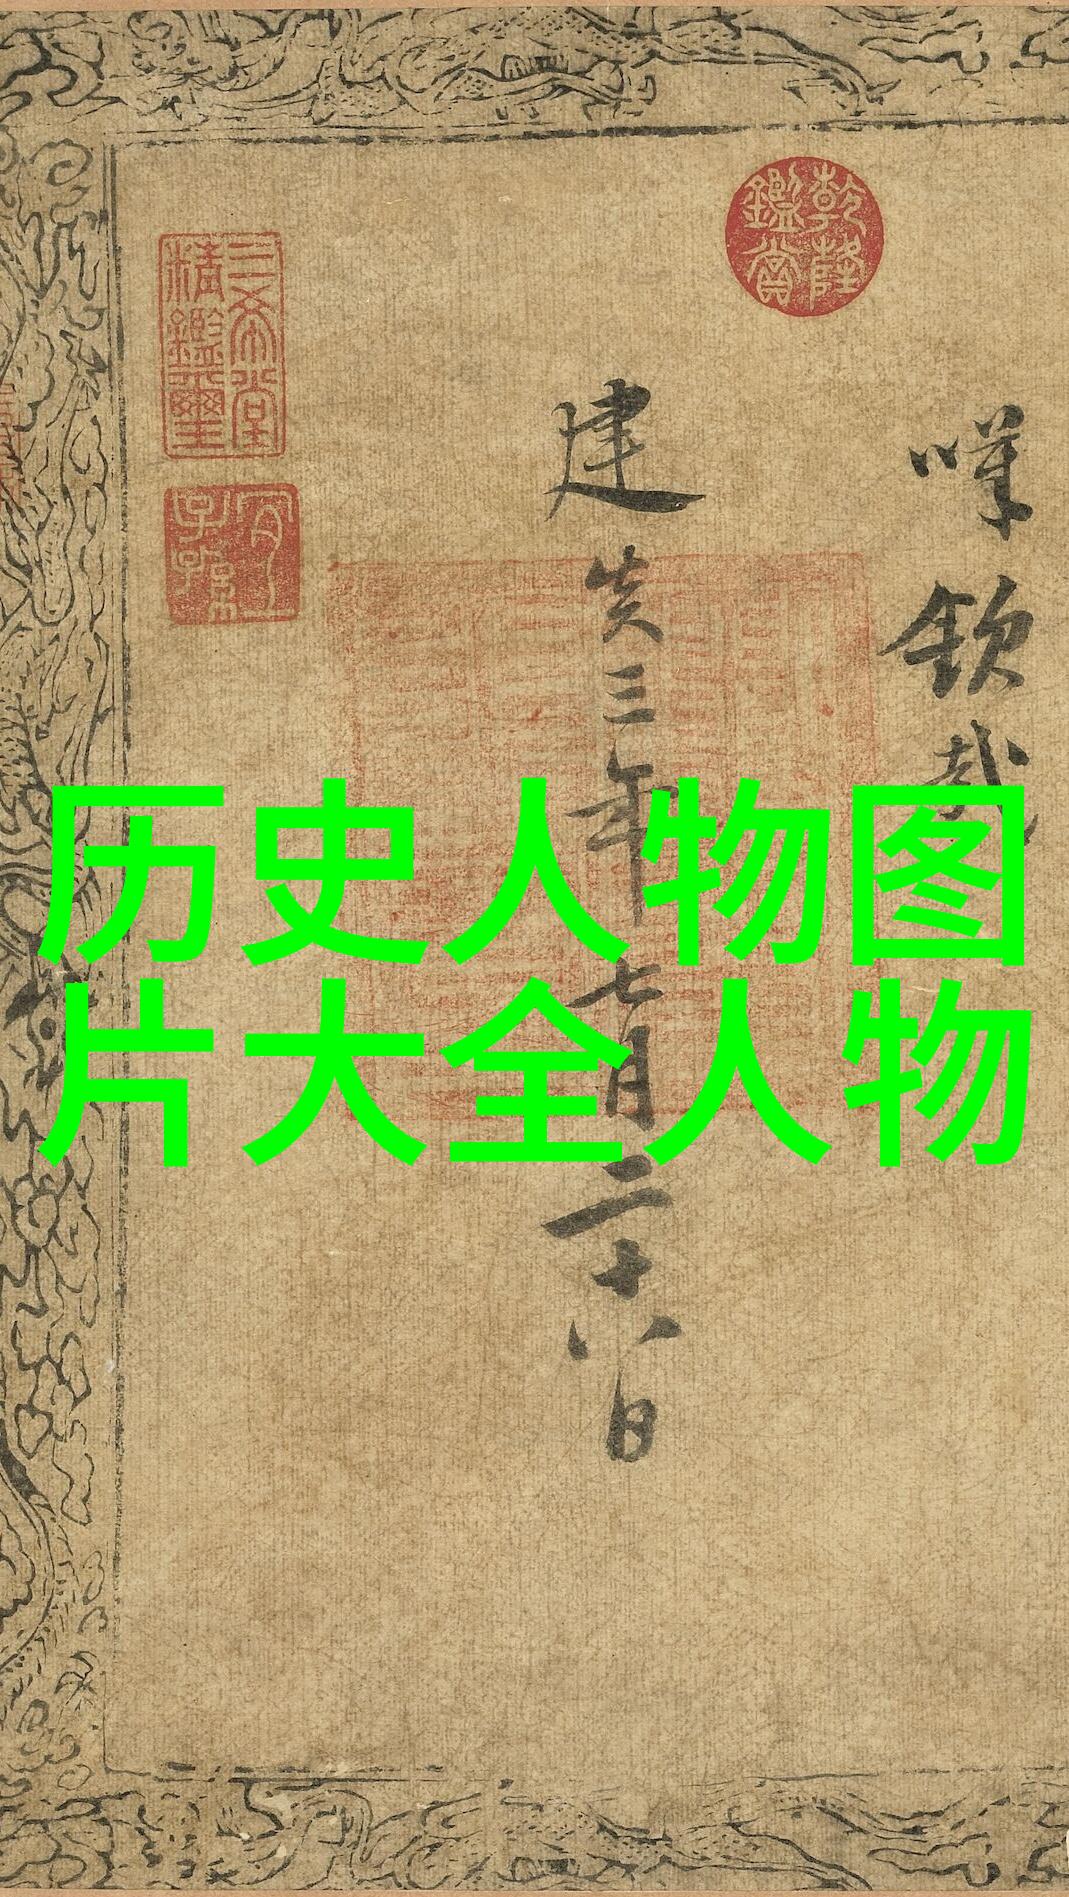 历史人物图
片大全人物
乾隆
鑑賞
三希堂
精鑑璽
宜
子孫
欽哉
建炎三年七月二十八日